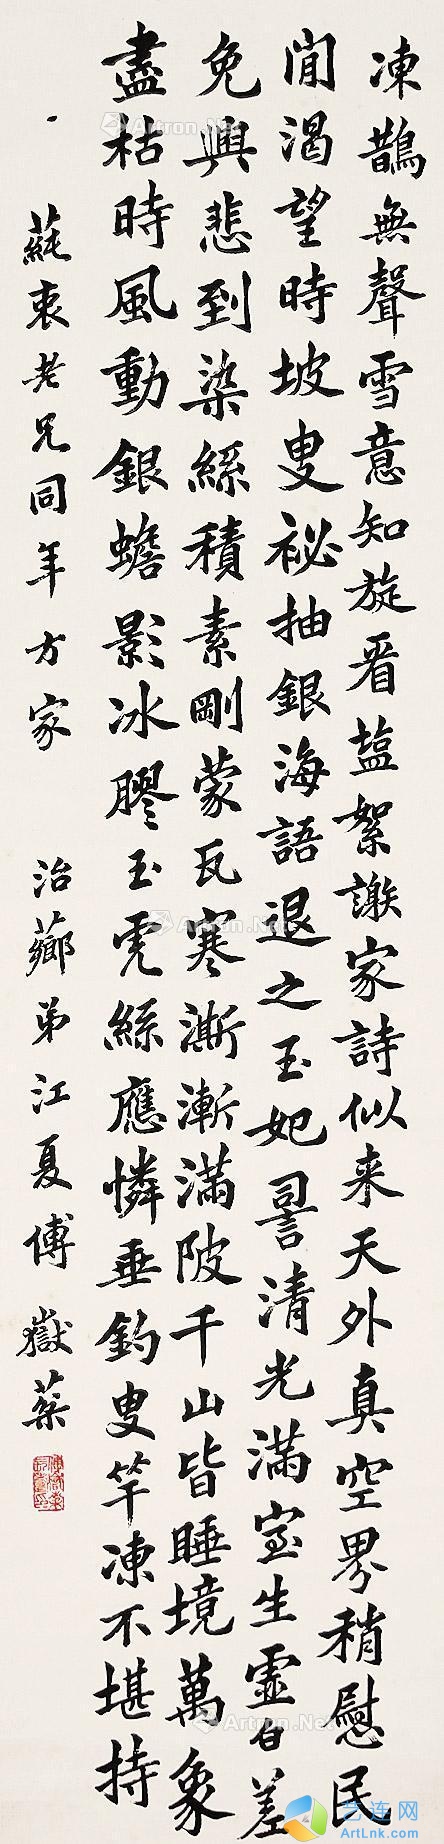 凍鵲無聲雪意知旋看塩絮謝家詩似来天外真空界稍慰民
間渴望時坡叟祕抽銀海語退之玉妃詞清光滿室生虛白差
免興悲到染絲積素剛蒙瓦寒澌漸滿陂千山皆睡境萬象
盡枯時風動銀蟾影冰膠玉虎絲應憐垂釣叟竿凍不堪持
蒓衷老兄同年方家 治薌弟江夏傅嶽棻
Artron.Net
艺连网
ArtLnk.com